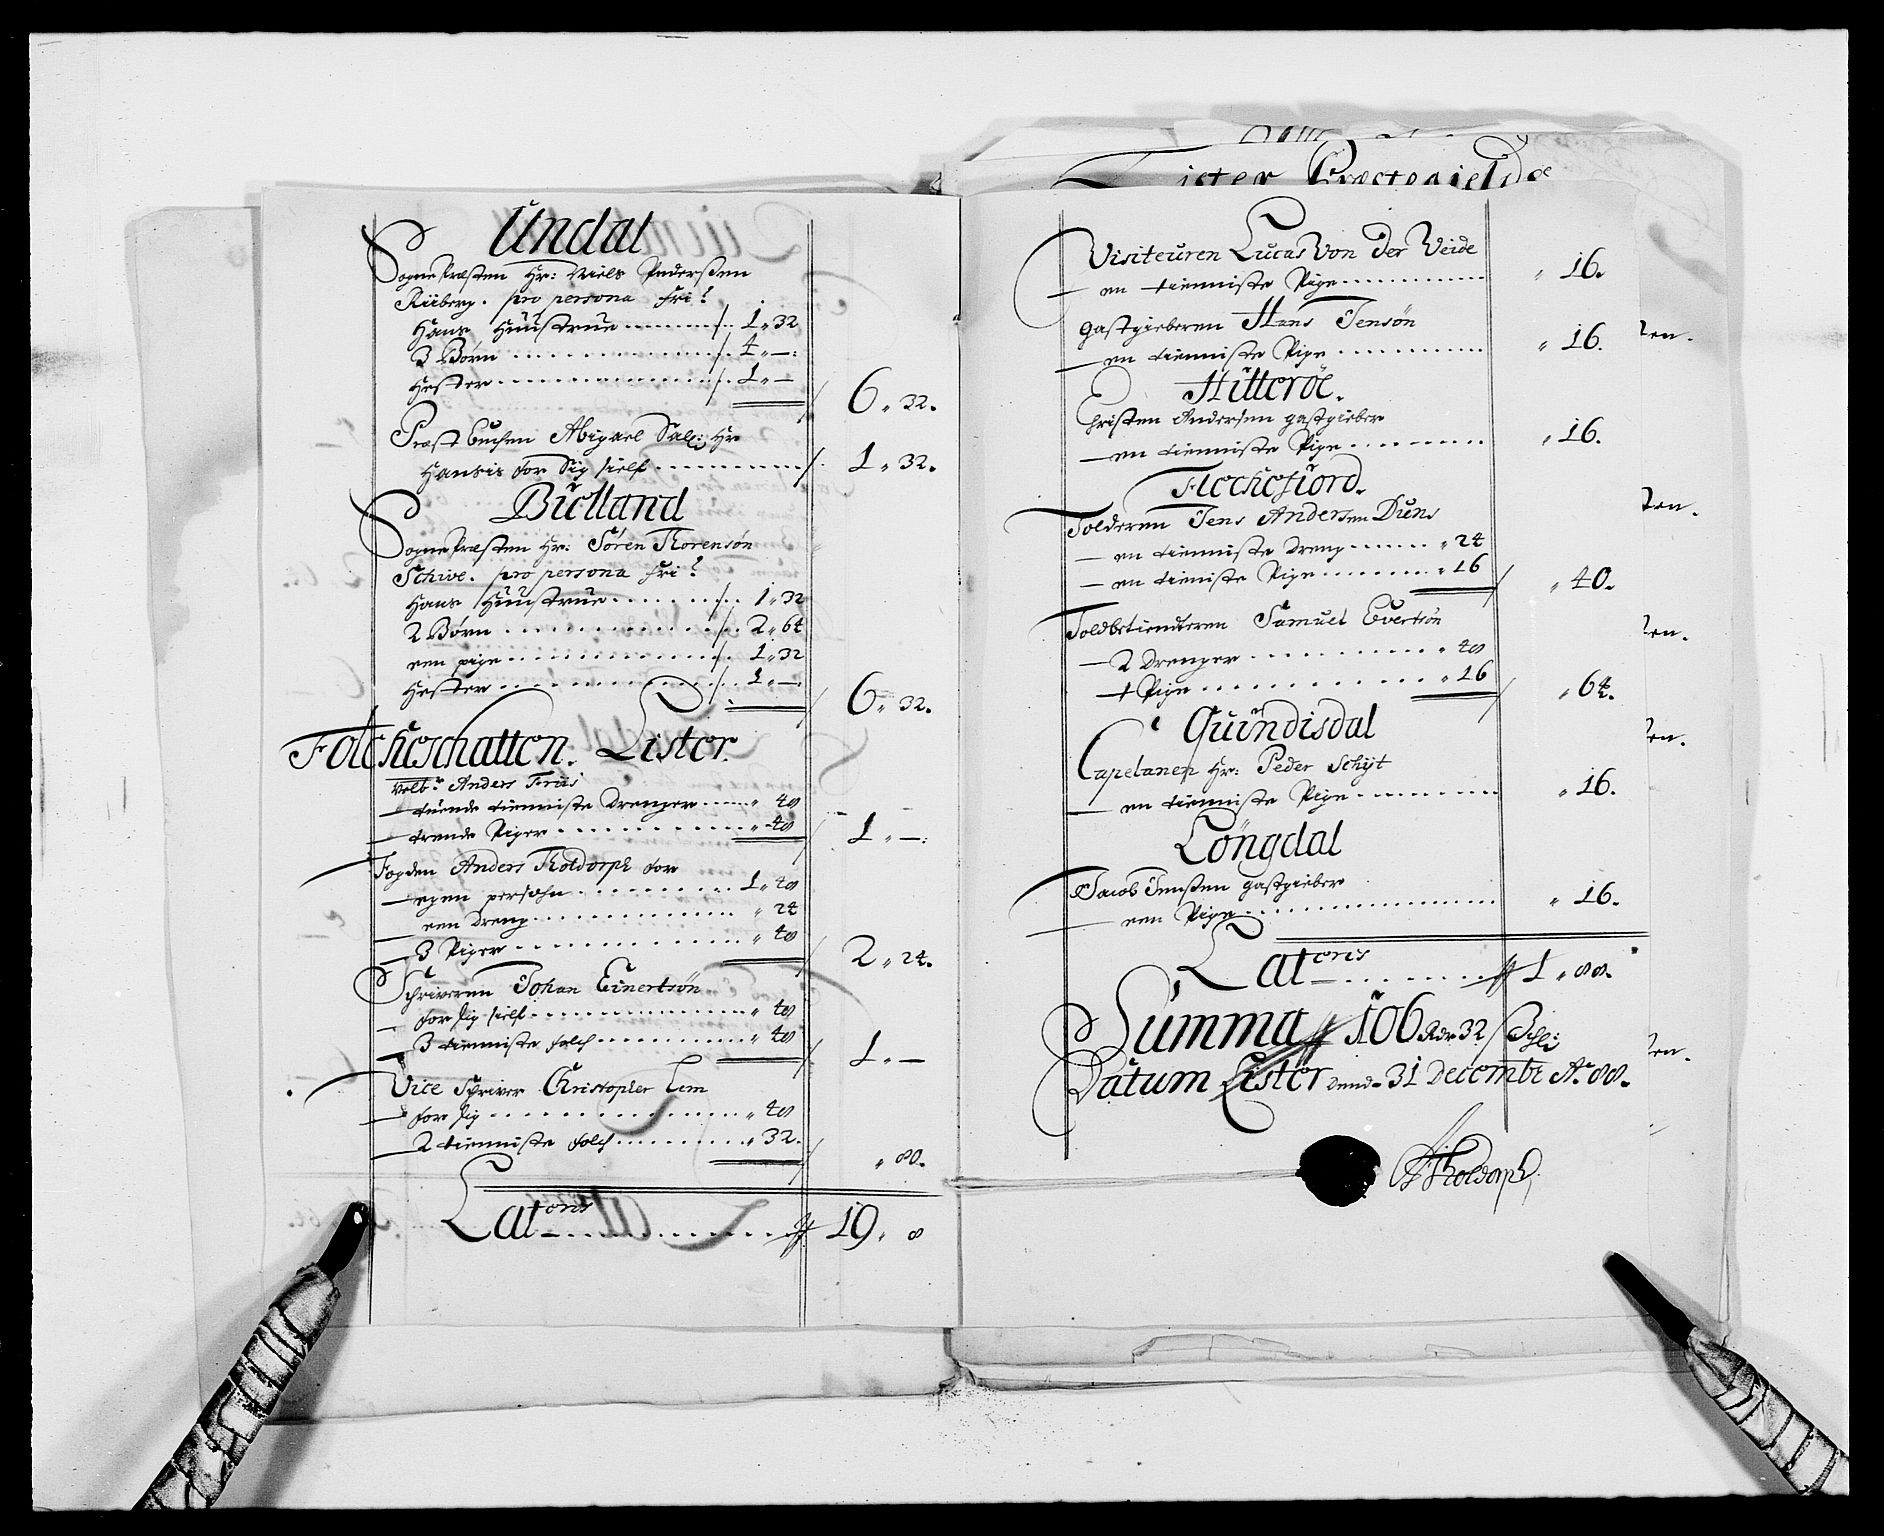 Undal
Sogne Præsten Hr: Niels Pedersen
Riiberg. pro persona fri!
Hans Hüüstrüe ......... /. 1 „ 32
3 Børn ............ /. 4 „ —:
Hester ............ /. 1 „ —
/ 6 „ 32.
Præst Enchen Abigael Sal: Hr
Hansis for Sig sielf ......... /. 1 „ 32.
Bielland
Sogne Præsten Hr: Sören Thorensön
Schive. pro persona fri!
Hans Hüüstrüe ......... /. 1 „ 32
2 Børn ............ /. 2 „ 64
een pige ............ /. 1 „ 32
Hester ............ /. 1 „ —.
/ 6 „ 32.
Folcheschatten. Lister.
Velb:r Anders Friis
— tuende tienniste Drenger ..... „ 48
— trende Piger ......... „ 48
/ 1 „ —:
Fogden Anders Tholdorph for
— egen persohn ......... 1 „ 48
— een Dreng ......... „ 24
— 3 Piger ......... „ 48
/ 2 „ 24.
Schriveren Johan Einertsön
— for sig sielf ......... „ 48
— 3 tienniste folch ......... „ 48
/ 1 „ —
Vice Schriver Christopher Lem
— for sig ......... „ 48
— 2 tienniste folch ......... „ 32.
/ „ 80.
Lat=eris ......... 19 „ 8
Lister Præstegielde
Visiteuren Lucas Von Der Veide
— en tienniste Pige ......... „ 16.
Gastgieberen Hans Jensön
— en tienniste Pige ......... „ 16.
Hitteröe.
Christen Andersen gastgieber
— en tienniste Pige ......... „ 16.
Flechefiord.
Tolderen Jens Andersen Duns
— en tienniste Dreng ...... „ 24
— en tieniste Pige ...... „ 16
/ „ 40.
Toldbetienteren Samuel Evertsön
— 2 Drenger ......... „ 48
— 1 Pige ......... „ 16
/ „ 64.
Quindisdal
Capelanen Hr: Peder Schÿt
— en tienniste Pige ......... „ 16.
Longdal
Jacob Jensen gastgieber
— een Pige ......... „ 16.
Lateris ......... 1 „ 88.
Summa 106 Rdr 32 Schl:
Datum Lister dend- 31 Decembr A:o 88.
ATholdorph
ten.
ten.
ten.
ten.
ten.